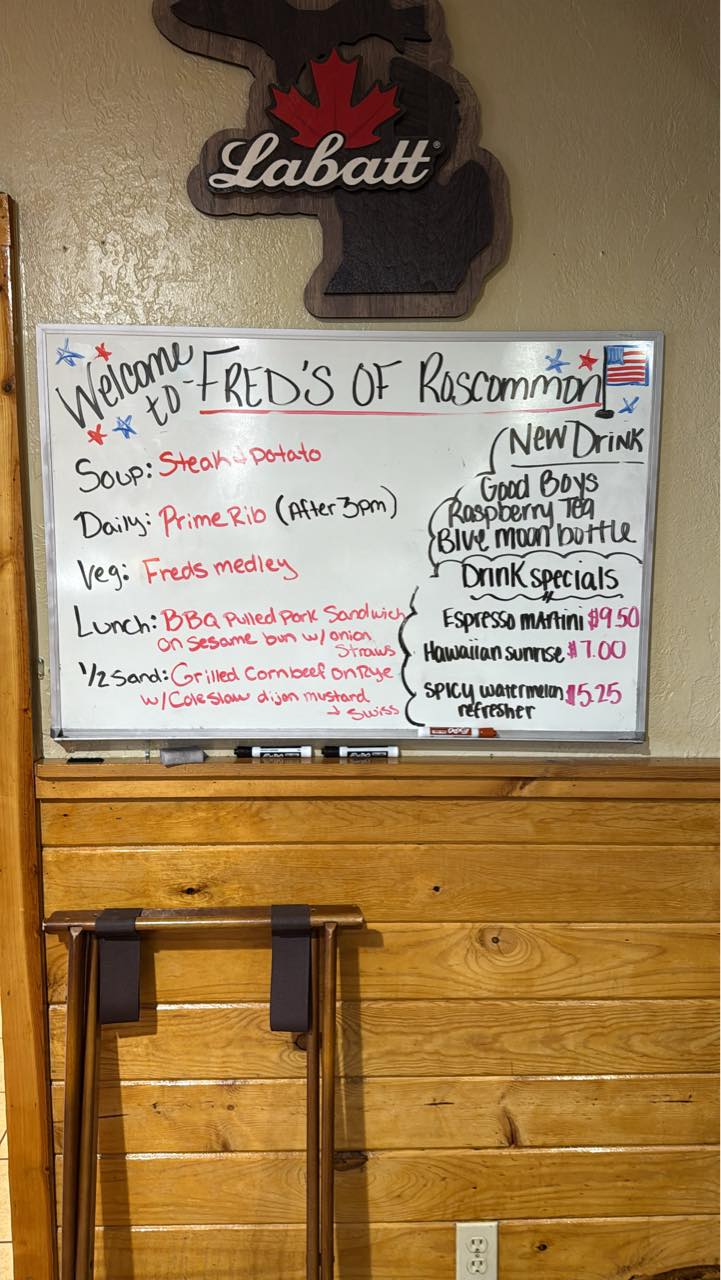 Labatt
Welcome
to - FRED'S OF Roscommon
Soup: Steak & Potato
Daily: Prime Rib (After 3pm)
Veg: Freds medley
Lunch: BBQ Pulled Pork Sandwich
on sesame bun w/ onion
Straws
1/2 Sand: Grilled Cornbeef on Rye
w/ Coleslaw dijon mustard
+ Swiss
New Drink
Good Boys
Raspberry Tea
Blue moon bottle
Drink specials
Espresso martini $9.50
Hawaiian sunrise $7.00
Spicy watermelon $5.25
refresher